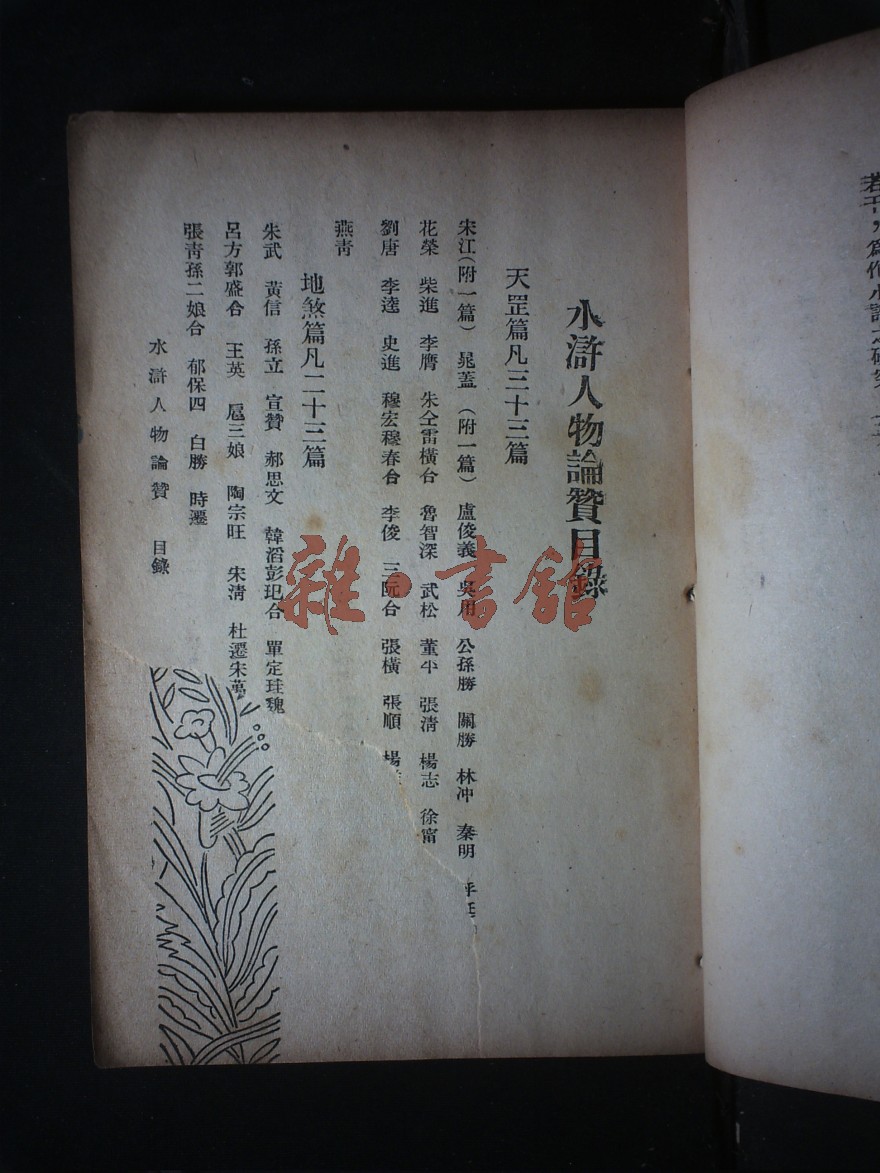 水滸人物論贊目錄
天罡篇凡三十三篇
宋江(附一篇) 晁蓋 (附一篇) 盧俊義 吳用 公孫勝 關勝 林冲 秦明
花榮 柴進 李膺 朱仝雷橫合 魯智深 武松 董平 張清 楊志 徐甯
劉唐 李逵 史進 穆宏穆春合 李俊 三阮合 張橫 張順 楊
燕靑
地煞篇凡二十三篇
朱武 黃信 孫立 宣贊 郝思文 韓滔彭玘合 單定珪魏
呂方郭盛合 王英 扈三娘 陶宗旺 宋淸 杜遷朱萬
張靑孫二娘合 郁保四 白勝 時遷
水滸人物論贊 目錄
雜·書館